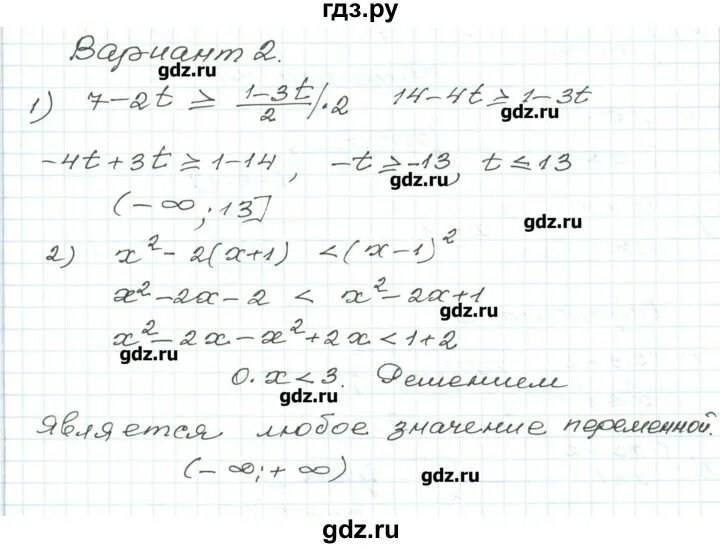 гдз.ру
Вариант 2.
gdz.ru
1) 7-2t ≥ (1-3t)/2 |·2 14-4t ≥ 1-3t
gdz.ru
-4t+3t ≥ 1-14, -t ≥ -13, t ≤ 13
gdz.ru
(-∞; 13]
gdz.ru
2) x² - 2(x+1) < (x-1)²
x² - 2x - 2 < x² - 2x + 1
gdz.ru
x² - 2x - x² + 2x < 1+2
gdz.ru
0·x < 3. Решением
gdz.ru
является любое значение переменной.
(-∞; +∞)
gdz.ru
gdz.ru